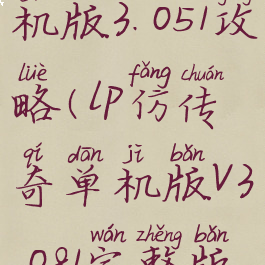 机版3.051攻
lüè fǎng chuán
略(lp仿传
qí dān jī bǎn
奇单机版V3
wán zhěng bǎn
.081完整版